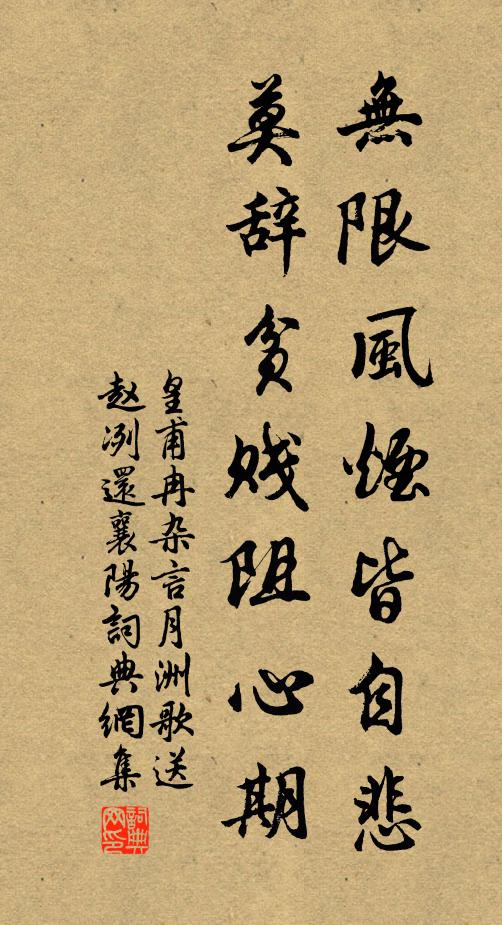 無限風煙皆自悲
莫辞貧賤阻心期
皇甫冉杂言月洲歌送
赵冽還襄陽詞典網集
詞典
网印